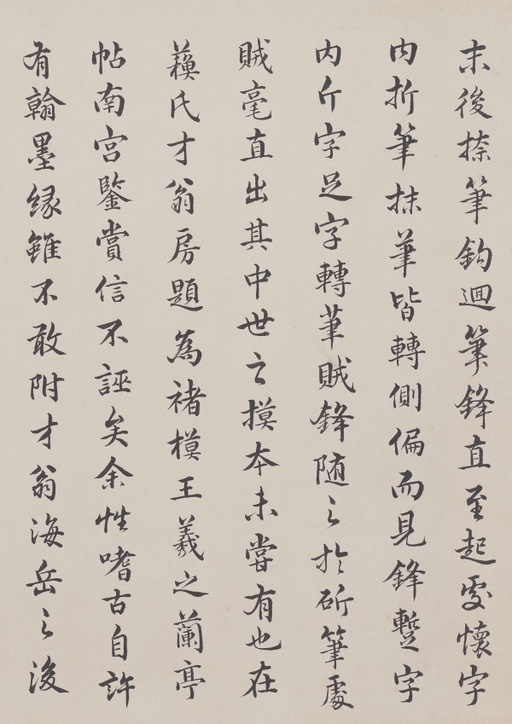 末後捺筆鈎迴筆鋒直至起處懷字
内折筆抹筆皆轉側偏而見鋒蹔字
内斤字足字轉筆賊鋒随之於斫筆處
賊毫直出其中世之摸本未嘗有也在
蘇氏才翁房題為褚模王羲之蘭亭
帖南宫鑒賞信不誣矣余性嗜古自許
有翰墨縁雖不敢附才翁海岳之後